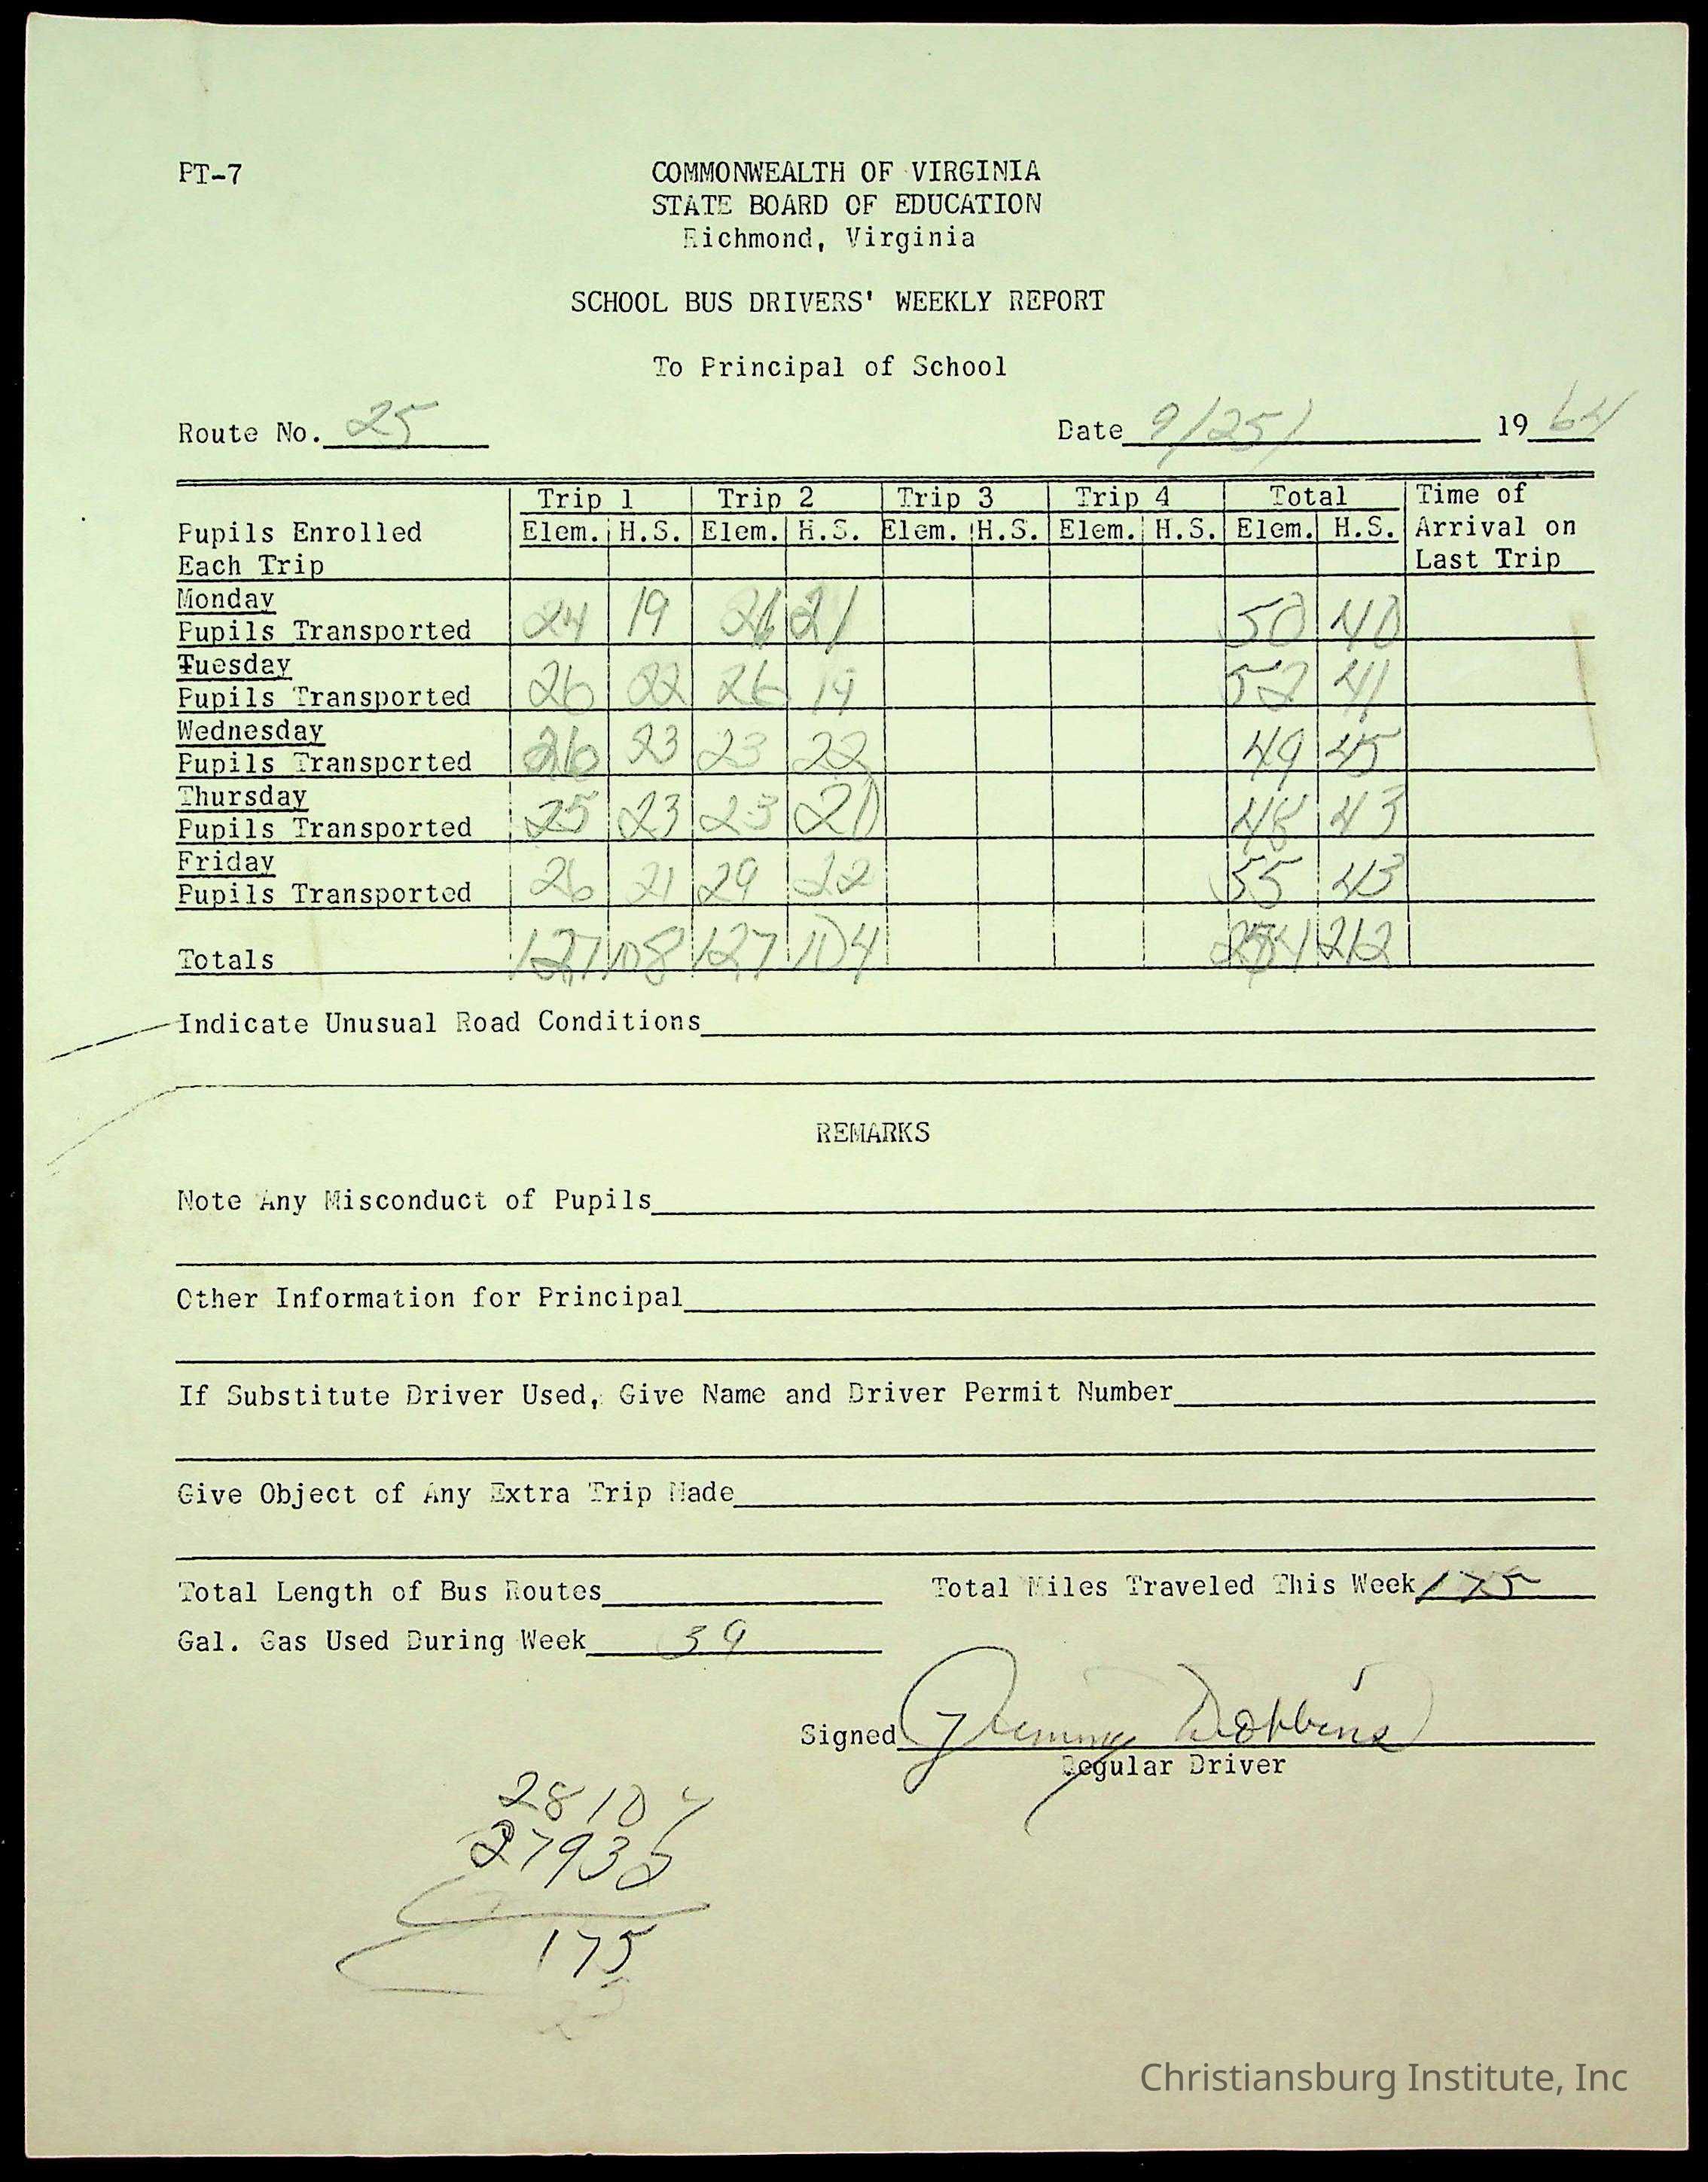 PT-7
COMMONWEALTH OF VIRGINIA
STATE BOARD OF EDUCATION
Richmond, Virginia
SCHOOL BUS DRIVERS' WEEKLY REPORT
To Principal of School
Route No. 25 Date 9/25/ 1964
Trip 1 Trip 2 Trip 3 Trip 4 Total Time of
Pupils Enrolled Elem. H.S. Elem. H.S. Elem. H.S. Elem. H.S. Elem. H.S. Arrival on
Each Trip Last Trip
Monday
Pupils Transported 24 19 26 21 50 40
Tuesday
Pupils Transported 26 22 26 19 52 41
Wednesday
Pupils Transported 26 23 23 22 49 45
Thursday
Pupils Transported 25 23 23 20 48 43
Friday
Pupils Transported 26 21 29 22 55 43
Totals 127 108 127 104 254 212
Indicate Unusual Road Conditions
REMARKS
Note Any Misconduct of Pupils
Other Information for Principal
If Substitute Driver Used, Give Name and Driver Permit Number
Give Object of Any Extra Trip Made
Total Length of Bus Routes Total Miles Traveled This Week 175
Gal. Gas Used During Week 39
Signed Jimmy Dobbins
Regular Driver
28107
27932
175
Christiansburg Institute, Inc